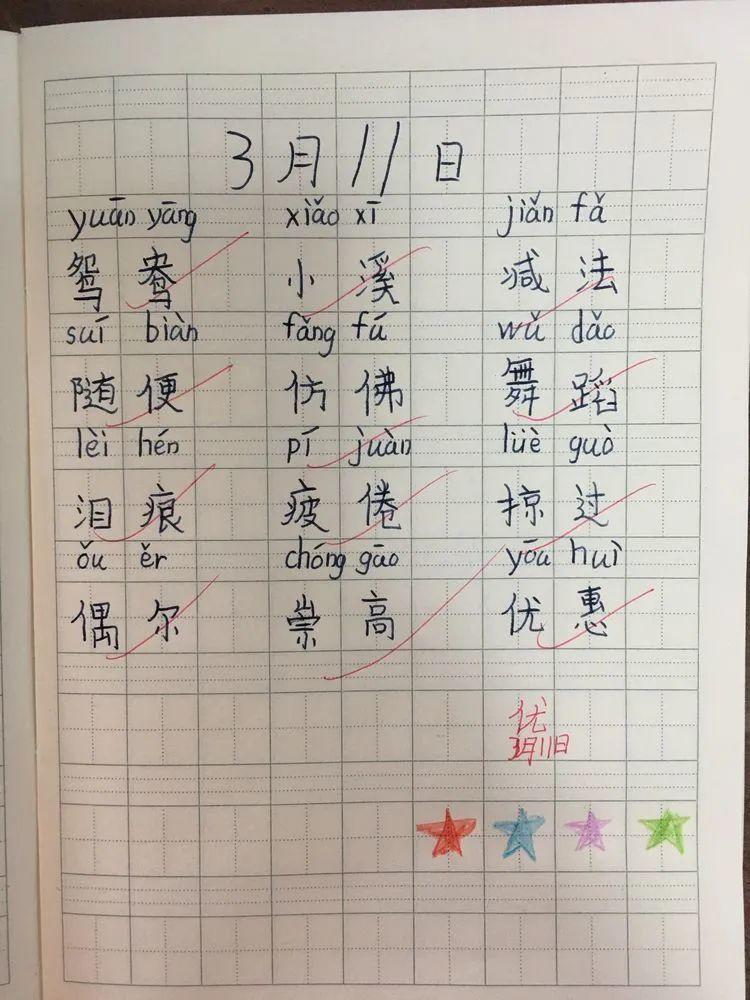 3月11日
yuān yāng xiǎo xī jiǎn fǎ
鸳鸯 小溪 减法
suí biàn fǎng fú wǔ dǎo
随便 仿佛 舞蹈
lèi hén pí juàn lüè guò
泪痕 疲倦 掠过
ǒu ěr chóng gāo yōu huì
偶尔 崇高 优惠
优
3月11日